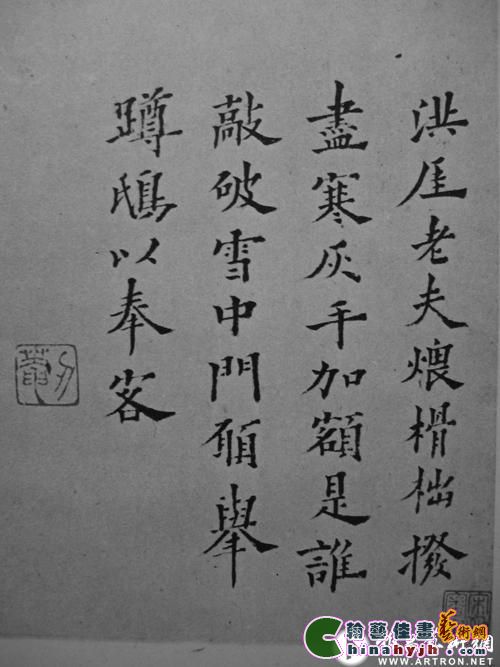 洪厓老夫煨榾柮撥
盡寒灰手加額是誰
敲破雪中門願舉
蹲鴟以奉客
翰藝佳畫藝術網
hinahyjh.com
WWW.ARTRON.NET